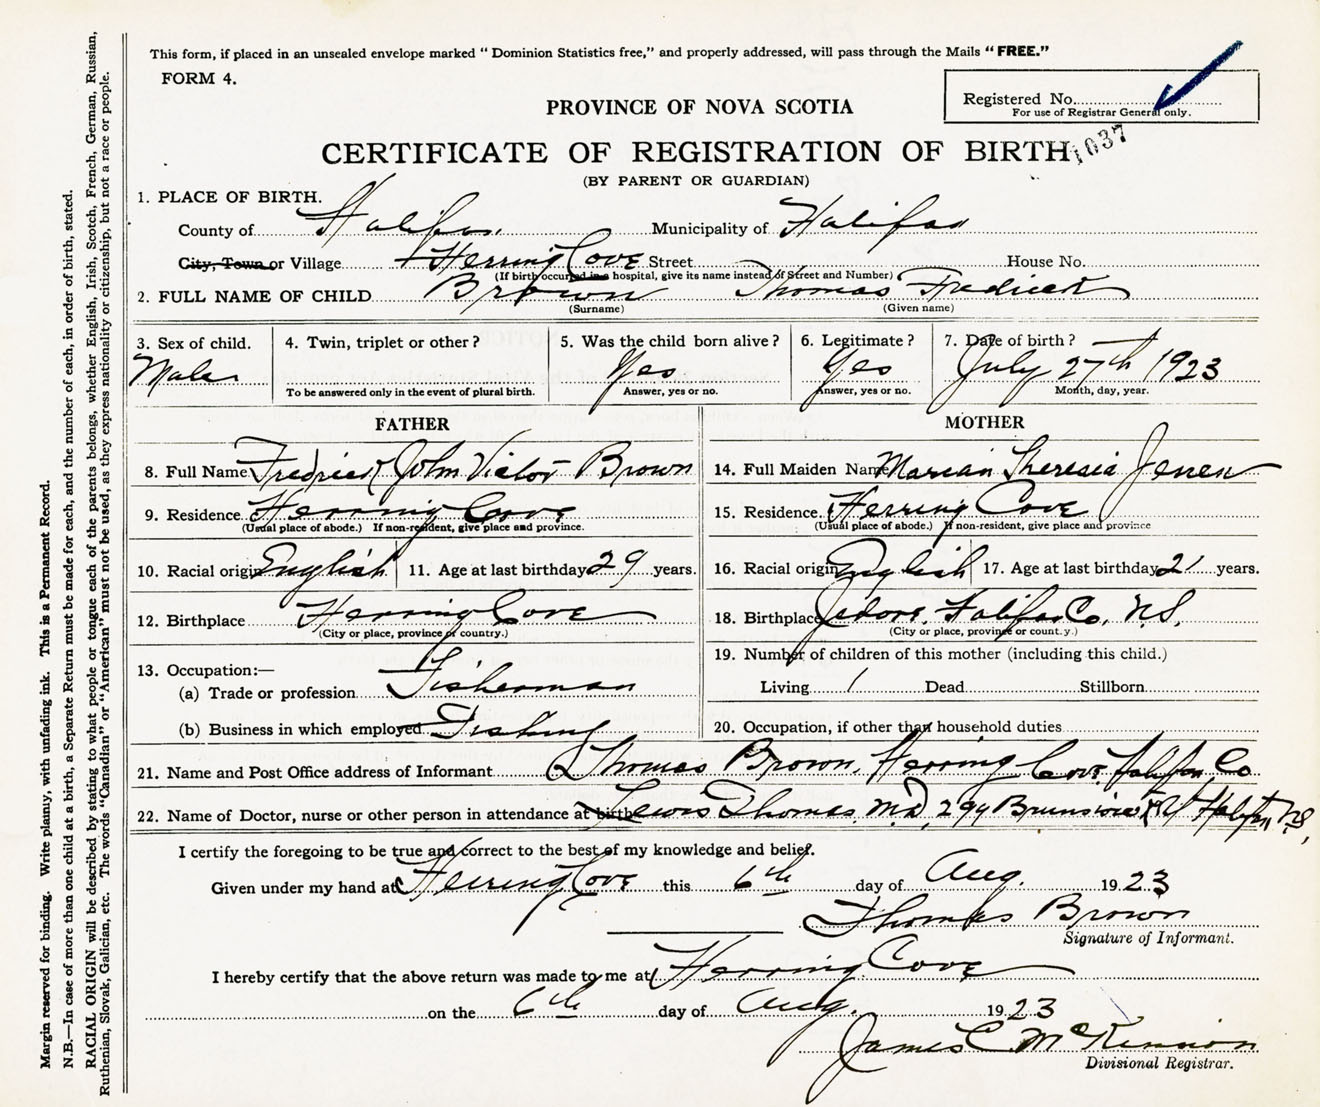 This form, if placed in an unsealed envelope marked "Dominion Statistics free," and properly addressed, will pass through the Mails "FREE."
FORM 4.
Registered No.
For use of Registrar General only.
PROVINCE OF NOVA SCOTIA
1037
CERTIFICATE OF REGISTRATION OF BIRTH
(BY PARENT OR GUARDIAN)
1. PLACE OF BIRTH.
County of Halifax. Municipality of Halifax
City, Town or Village Herring Cove Street House No.
(If birth occurred in a hospital, give its name instead of Street and Number)
2. FULL NAME OF CHILD Brown Thomas Fredrick
(Surname) (Given name)
3. Sex of child. 4. Twin, triplet or other? 5. Was the child born alive? 6. Legitimate? 7. Date of birth?
Male Yes Yes July 27th 1923
To be answered only in the event of plural birth. Answer, yes or no. Answer, yes or no. Month, day, year.
FATHER MOTHER
8. Full Name Fredrick John Victor Brown 14. Full Maiden Name Marian Theresia
9. Residence Herring Cove 15. Residence. Herring Cove
(Usual place of abode.) If non-resident, give place and province. (Usual place of abode.) If non-resident, give place and province
10. Racial origin English 11. Age at last birthday 29 years. 16. Racial origin English 17. Age at last birthday 21 years.
12. Birthplace Herring Cove 18. Birthplace Jedore, Halifax Co, N.S.
(City or place, province or country.) (City or place, province or count.y.)
13. Occupation:— 19. Number of children of this mother (including this child.)
(a) Trade or profession Fisherman Living 1 Dead Stillborn
(b) Business in which employed Fishing 20. Occupation, if other than household duties
21. Name and Post Office address of Informant Thomas Brown, Herring Cove, Halifax Co
22. Name of Doctor, nurse or other person in attendance at birth Lewis Thomas M.D, 294 Brunswick St Halifax N.S,
I certify the foregoing to be true and correct to the best of my knowledge and belief.
Given under my hand at Herring Cove this 6th day of Aug. 1923
Thomas Brown
Signature of Informant.
I hereby certify that the above return was made to me at Herring Cove
on the 6th day of Aug. 1923
James C McKinnon
Divisional Registrar.
Margin reserved for binding. Write plainly, with unfading ink. This is a Permanent Record.
N.B.—In case of more than one child at a birth, a Separate Return must be made for each, and the number of each, in order of birth, stated.
RACIAL ORIGIN will be described by stating to what people or tongue each of the parents belongs, whether English, Irish, Scotch, French, German, Russian,
Ruthenian, Slovak, Galician, etc. The words "Canadian" or "American" must not be used, as they express nationality or citizenship, but not a race or people.